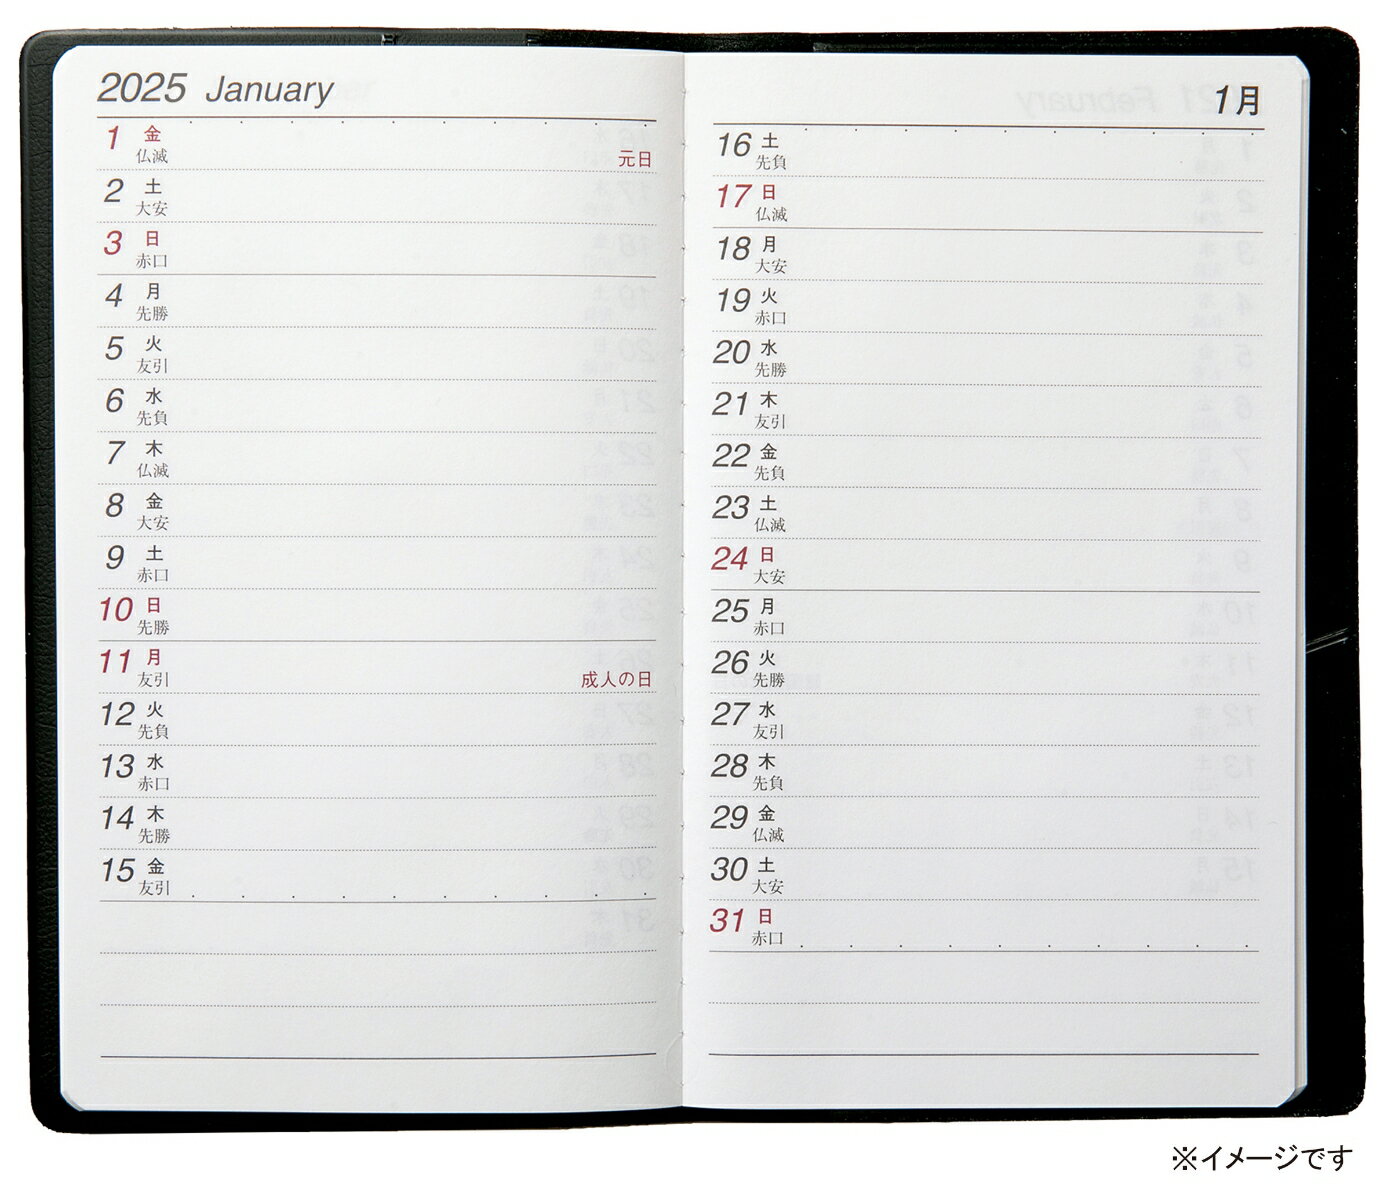 2025 January
1 金
仏滅 元日
2 土
大安
3 日
赤口
4 月
先勝
5 火
友引
6 水
先負
7 木
仏滅
8 金
大安
9 土
赤口
10 日
先勝
11 月
友引 成人の日
12 火
先負
13 水
赤口
14 木
先勝
15 金
友引
1月
16 土
先負
17 日
仏滅
18 月
大安
19 火
赤口
20 水
先勝
21 木
友引
22 金
先負
23 土
仏滅
24 日
大安
25 月
赤口
26 火
先勝
27 水
友引
28 木
先負
29 金
仏滅
30 土
大安
31 日
赤口
※イメージです